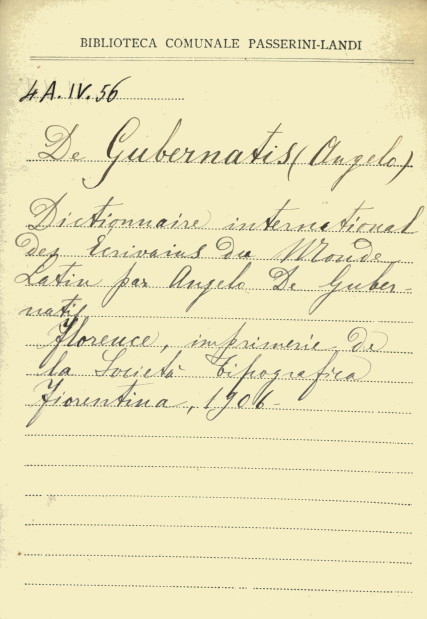 BIBLIOTECA COMUNALE PASSERINI-LANDI
4 A. IV. 56
De Gubernatis (Angelo)
Dictionnaire international
des Ecrivains du Monde
Latin par Angelo De Guber-
natis
Florence, imprimerie de
la Società Tipografica
Fiorentina, 1906-